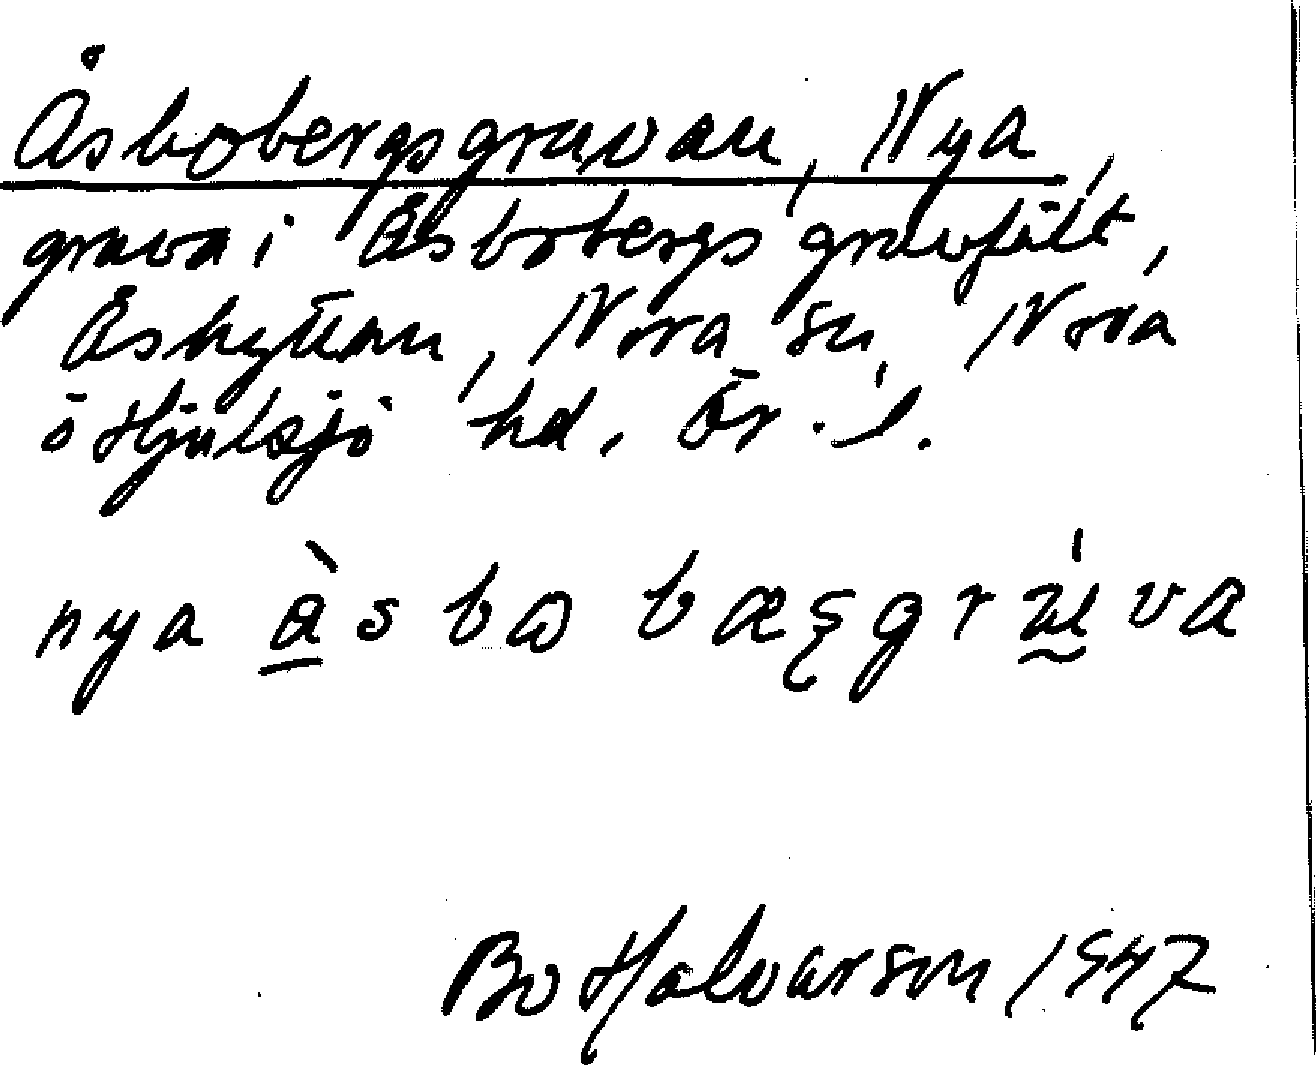 Åsbobergsgruvan, Nya,
gruva i Åsbobergs gruvfält,
Åshyttan, Nora sn, Nora
o Hjulsjö hd. Ör. l.
nya
Bo Halvarson 1947